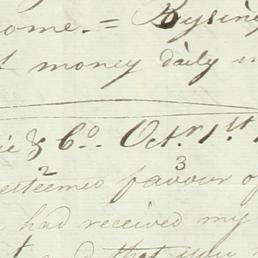 ome. = Bysin
money daily
& Co. Octr. 1st
2 3
esteemed favour of
had received my
that you